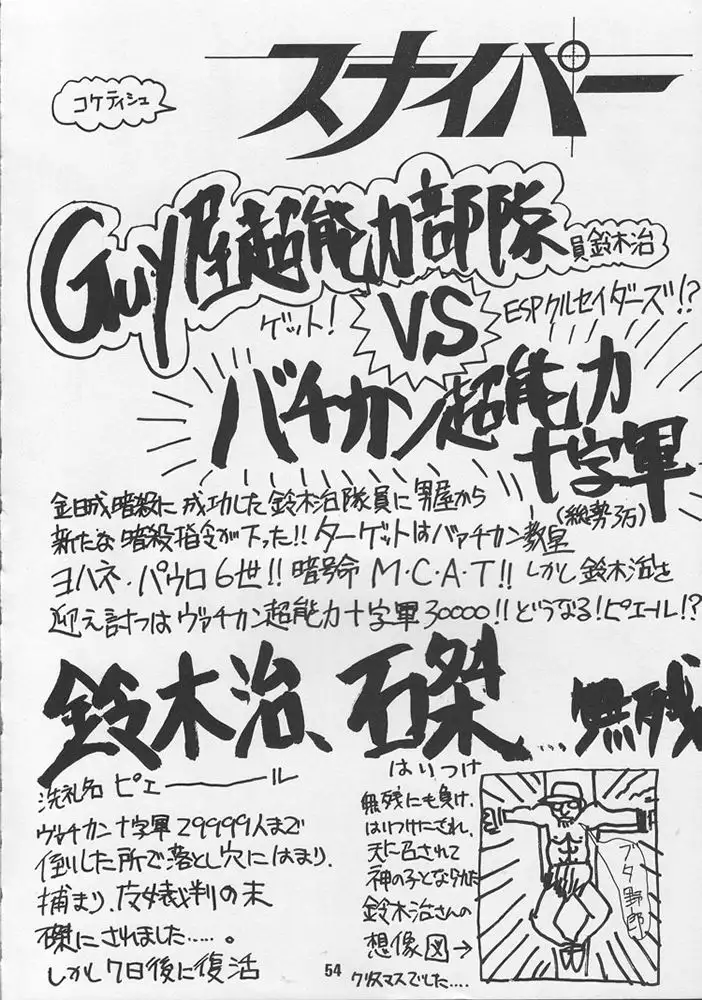 コケティシュ
スナイパー
Guy屋超能力部隊
員鈴木治
ゲット!
VS
ESPクルセイダーズ!?
バチカン超能力
十字軍
(総勢3万)
金日成暗殺に成功した鈴木治隊員に男屋から
新たな暗殺指令が下った!!ターゲットはバァチカン教皇
ヨハネ・パウロ6世!!暗号命M・C・A・T!!しかし鈴木治を
迎え討つはヴァチカン超能力十字軍30000!!どうなる!ピエール!?
鈴木治、石桀…無残
はりつけ
洗礼名 ピエ――ル
ヴァチカン十字軍29999人まで
倒した所で落とし穴にはまり、
捕まり、魔女裁判の末
磔にされました……。
しかし7日後に復活
無残にも負け、
はりつけにされ、
天に召されて
神の子となられた
鈴木治さんの
想像図→
クリスマスでした….
ブタ野郎
54